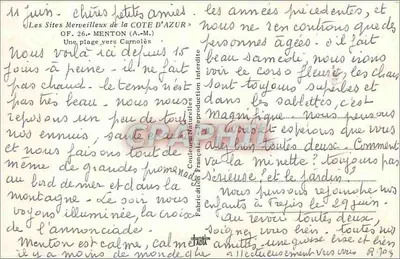 11 Juin. chères petites amies
"Les Sites Merveilleux de la COTE D'AZUR"
OF. 26.- MENTON (A.-M.)
Une plage vers Carnolès
Nous voilà ici depuis 15
jours à peine. il ne fait
pas chaud. le temps n'est
pas très beau. nous nous
reposons un peu de tous
nos ennuis, santé
et nous faisons tout de
même de grandes promenades
au bord de mer et dans la
montagne. Le soir nous
voyons illuminée, la croix
de l'annonciade.
Menton est calme, calme
il y a moins de monde que
Couleurs Naturelles
Fabrication Française - Reproduction Interdite
les années précédentes, et
nous ne rencontrons que des
personnes âgées. s'il fait
beau samedi, nous irons
voir le corso fleuri, les chars
sont toujours superbes et
dans les sablettes, c'est
magnifique. Nous pensons
à vous et espérons que vous
allez bien toutes deux. Comment
va la minette? toujours pas
sérieuse! et le jardin?
Nous pensons rejoindre nos
enfants à Fréjus le 29 juin.
au revoir toutes deux,
soignez vous bien. toutes nos
amitiés une grosse bise et bien
affectueusement vers vous